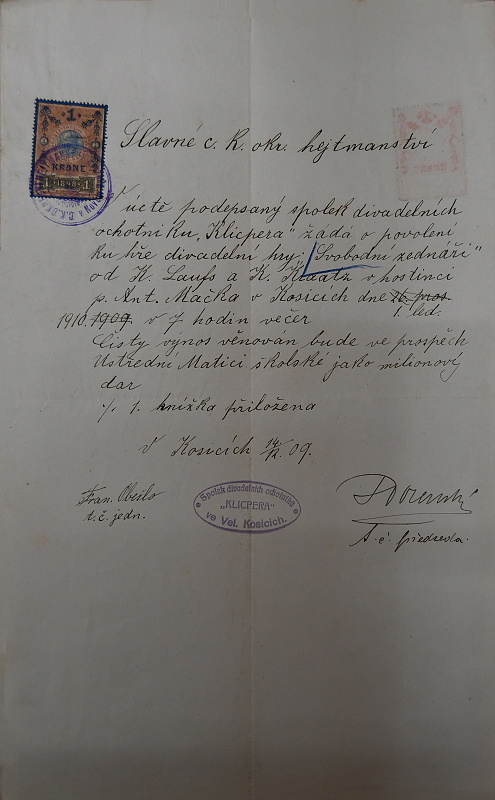 1
KRONE
1 1898 1
Slavné c. k. okr. hejtmanství
V úctě podepsaný spolek divadelních
ochotniku „Klicpera“ žadá o povolení
ku hře divadelní hry: „Svobodní zednáři“
od K. Laufs a K. Kraatz v hostinci
p. Ant. Mačka v Kosicích dne 26. pros.
1. led.
1910. 1909 v 7 hodin večer
Cistý vynos věnovan bude ve prospěch
Ustrední Matici školské jako milionový
dar
1. knížka přiložena
v Kosicích 14/12. 09.
Fran.
t. č. jedn.
Spolek divadelních ochotníků
„KLICPERA“
ve Vel. Kosicích.
t. č. předseda.